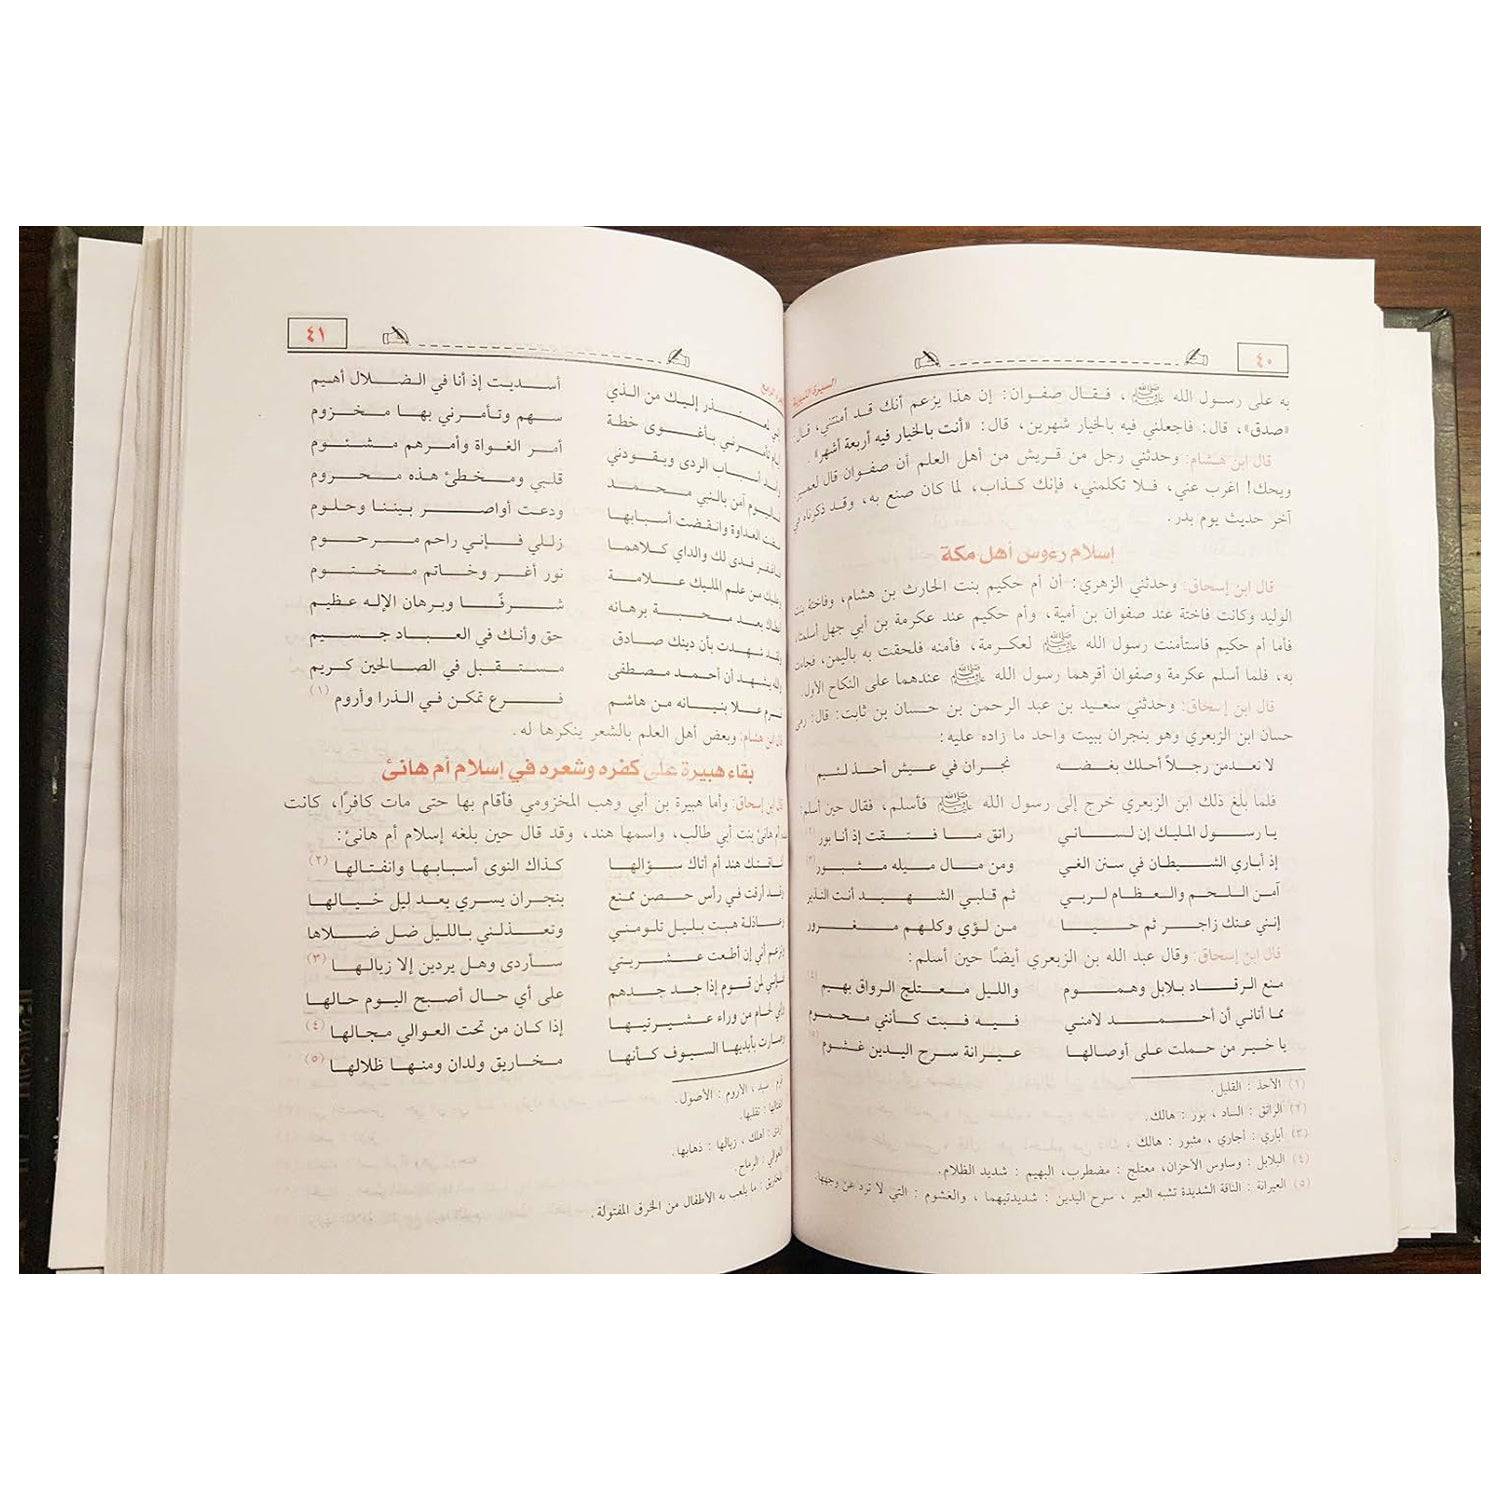 ٤٠
السيرة النبوية
به على رسول الله ﷺ، فقال صفوان: إن هذا يزعم أنك قد أمنتني، قال:
«صدق»، قال: فاجعلني فيه بالخيار شهرين، قال: «أنت بالخيار فيه أربعة أشهر».
قال ابن هشام: وحدثني رجل من قريش من أهل العلم أن صفوان قال لعمير
ويحك! اغرب عني، فلا تكلمني، فإنك كذاب، لما كان صنع به، وقد ذكرناه في
آخر حديث يوم بدر.
إسلام رءوس أهل مكة
قال ابن إسحاق: وحدثني الزهري: أن أم حكيم بنت الحارث بن هشام، وفاختة بنت
الوليد وكانت فاختة عند صفوان بن أمية، وأم حكيم عند عكرمة بن أبي جهل أسلمتا،
فأما أم حكيم فاستأمنت رسول الله ﷺ لعكرمة، فأمنه فلحقت به باليمن، فجاءت
به، فلما أسلم عكرمة وصفوان أقرهما رسول الله ﷺ عندهما على النكاح الأول.
قال ابن إسحاق: وحدثني سعيد بن عبد الرحمن بن حسان بن ثابت: قال: رمى
حسان ابن الزبعري وهو بنجران ببيت واحد ما زاده عليه:
لا تعدمن رجلاً أحلك بغضه نجران في عيش أحذ لئيم
فلما بلغ ذلك ابن الزبعري خرج إلى رسول الله ﷺ فأسلم، فقال حين أسلم:
يا رسول المليك إن لساني راتق ما فتقت إذ أنا بور
إذ أباري الشيطان في سنن الغي ومن مال ميله مثبور
آمن اللحم والعظام لربي ثم قلبي الشهيد أنت النذير
إنني عنك زاجر ثم حيا من لؤي وكلهم مغرور
قال ابن إسحاق: وقال عبد الله بن الزبعري أيضًا حين أسلم:
منع الرقاد بلابل وهموم والليل معتلج الرواق بهيم (٤)
مما أتاني أن أحمد لامني فيه فبت كأنني محموم
يا خير من حملت على أوصالها عيرانة سرح اليدين غشوم (٥)
(١) الأحذ : القليل.
(٢) الراتق : الساد ، بور : هالك.
(٣) أباري : أجاري ، مثبور : هالك ،
(٤) البلابل : وساوس الأحزان، معتلج : مضطرب، البهيم : شديد الظلام.
(٥) العيرانة : الناقة الشديدة تشبه العير ، سرح اليدين : شديدتيهما ، والغشوم : التي لا ترد عن وجهها.
٤١
إليك من الذي أسديت إذ أنا في الضلال أهيم
تأمرني بأغوى خطة سهم وتأمرني بها مخزوم
أسباب الردى ويقودني أمر الغواة وأمرهم مشئوم
آمن بالنبي محمد قلبي ومخطئ هذه محروم
العداوة وانقضت أسبابها ودعت أواصر بيننا وحلوم
فدى لك والداي كلاهما زللي فإني راحم مرحوم
من علم المليك علامة نور أغر وخاتم مختوم
بعد محبة برهانه شرفًا وبرهان الإله عظيم
شهدت بأن دينك صادق حق وأنك في العباد جسيم
يشهد أن أحمد مصطفى مستقبل في الصالحين كريم
علا بنيانه من هاشم فرع تمكن في الذرا وأروم (١)
ابن هشام: وبعض أهل العلم بالشعر ينكرها له.
بقاء هبيرة على كفره وشعره في إسلام أم هانئ
ابن إسحاق: وأما هبيرة بن أبي وهب المخزومي فأقام بها حتى مات كافرًا، كانت
أم هانئ بنت أبي طالب، واسمها هند، وقد قال حين بلغه إسلام أم هانئ:
هند أم أتاك سؤالها كذاك النوى أسبابها وانفتالها (٢)
أرقت في رأس حصن ممنع بنجران يسري بعد ليل خيالها
هبت بليل تلومني وتعذلني بالليل ضل ضلالها
أني إن أطعت عشيرتي سأردى وهل يردين إلا زيالها (٣)
لمن قوم إذا جد جدهم على أي حال أصبح اليوم حالها
من وراء عشيرتيها إذا كان من تحت العوالي مجالها (٤)
بأيديها السيوف كأنها مخاريق ولدان ومنها ظلالها (٥)
سيد ، الأروم : الأصول.
تقلبها.
أهلك ، زيالها : ذهابها.
العوالي : الرماح.
المخاريق : ما يلعب به الأطفال من الخرق المفتولة.